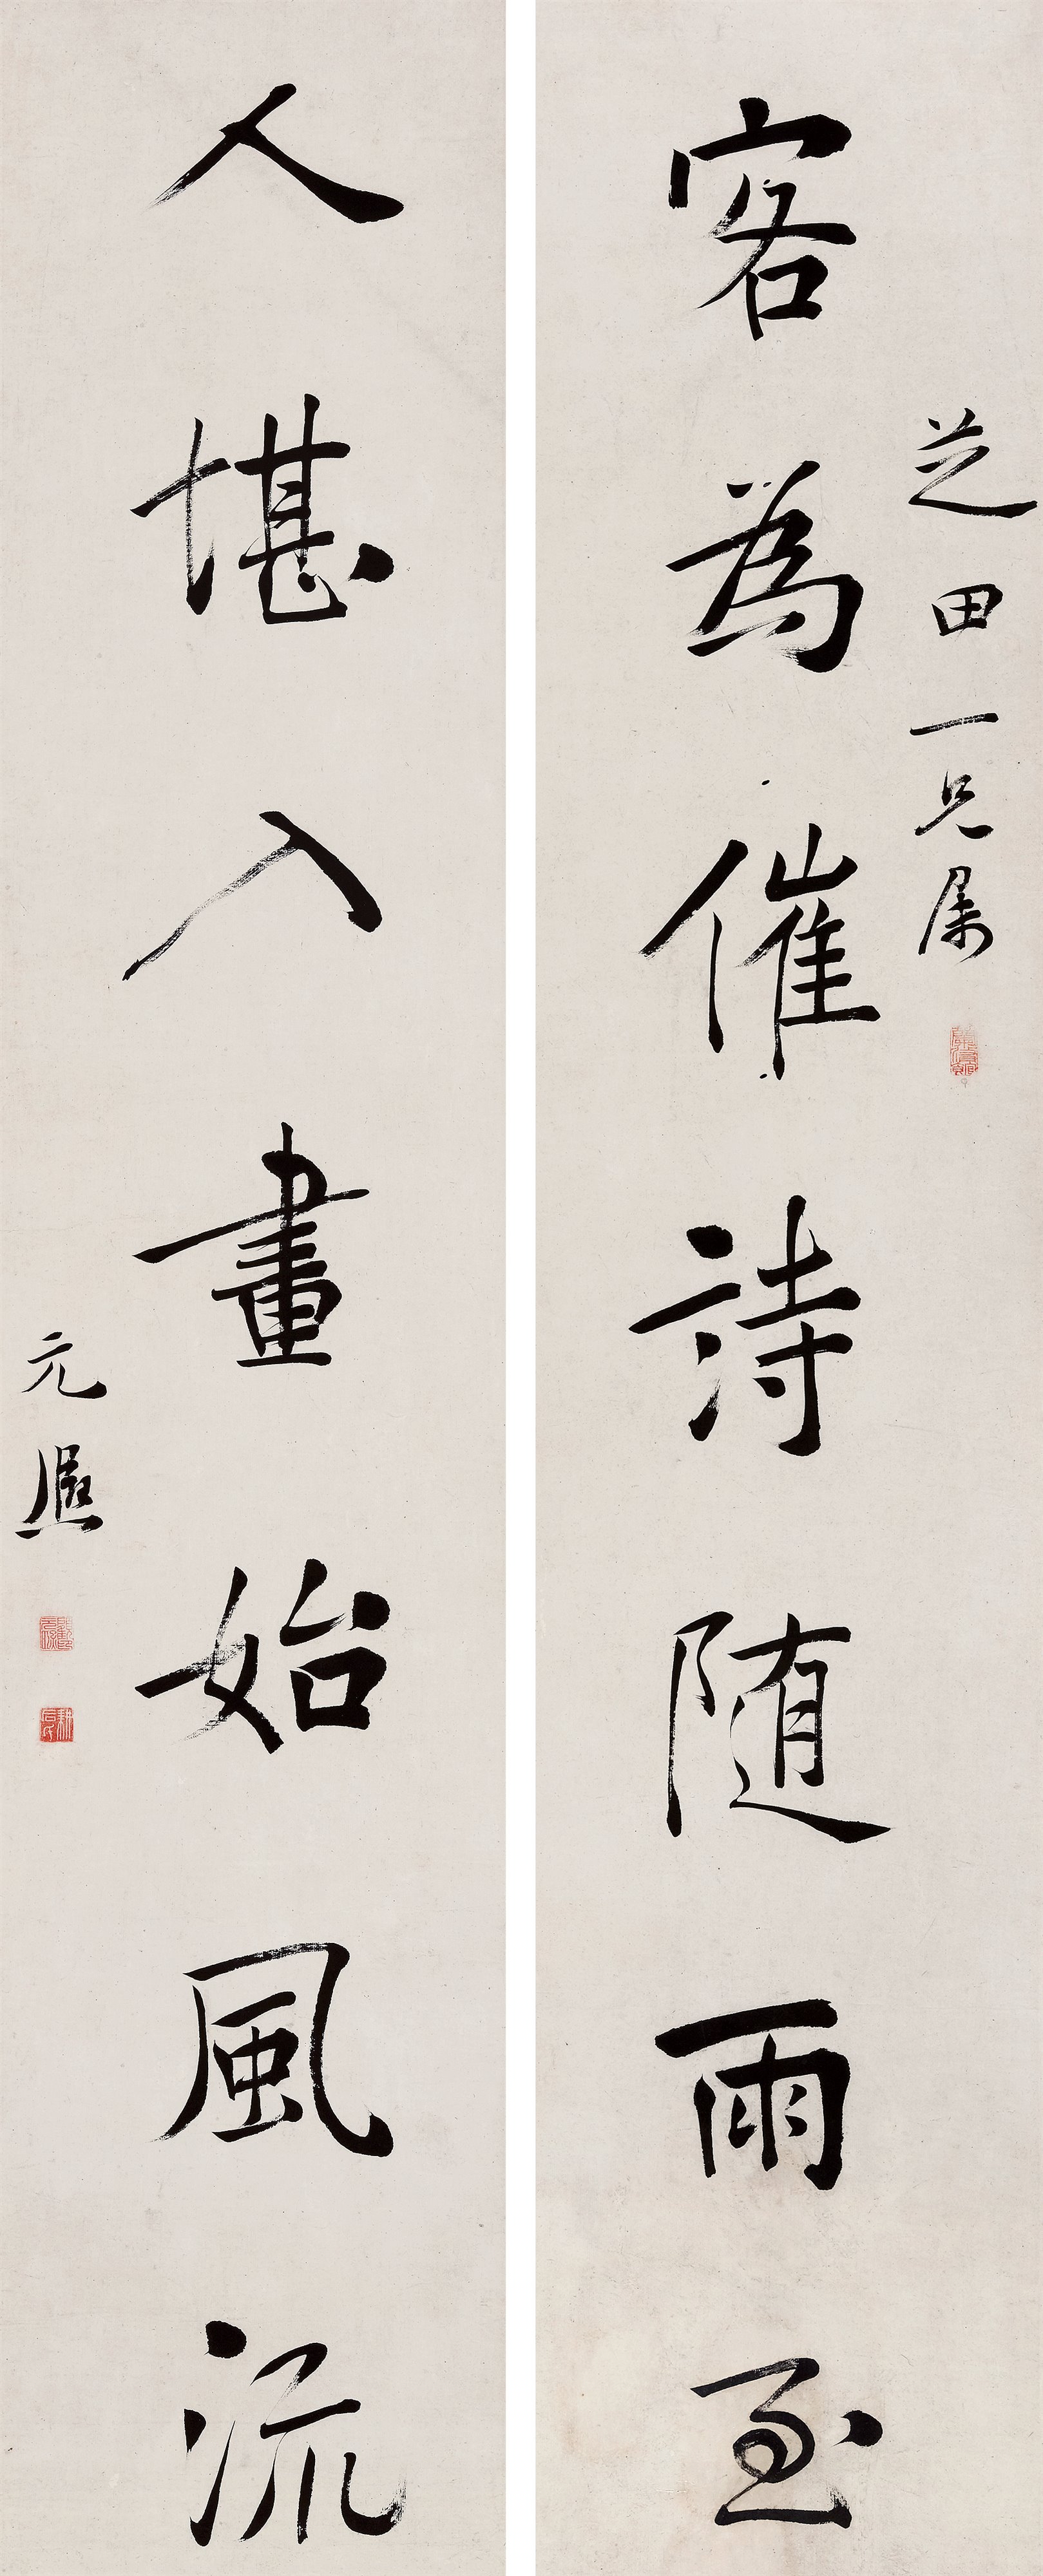 芝田一兄属
客為催詩随雨至
人堪入畫始風流
元煕